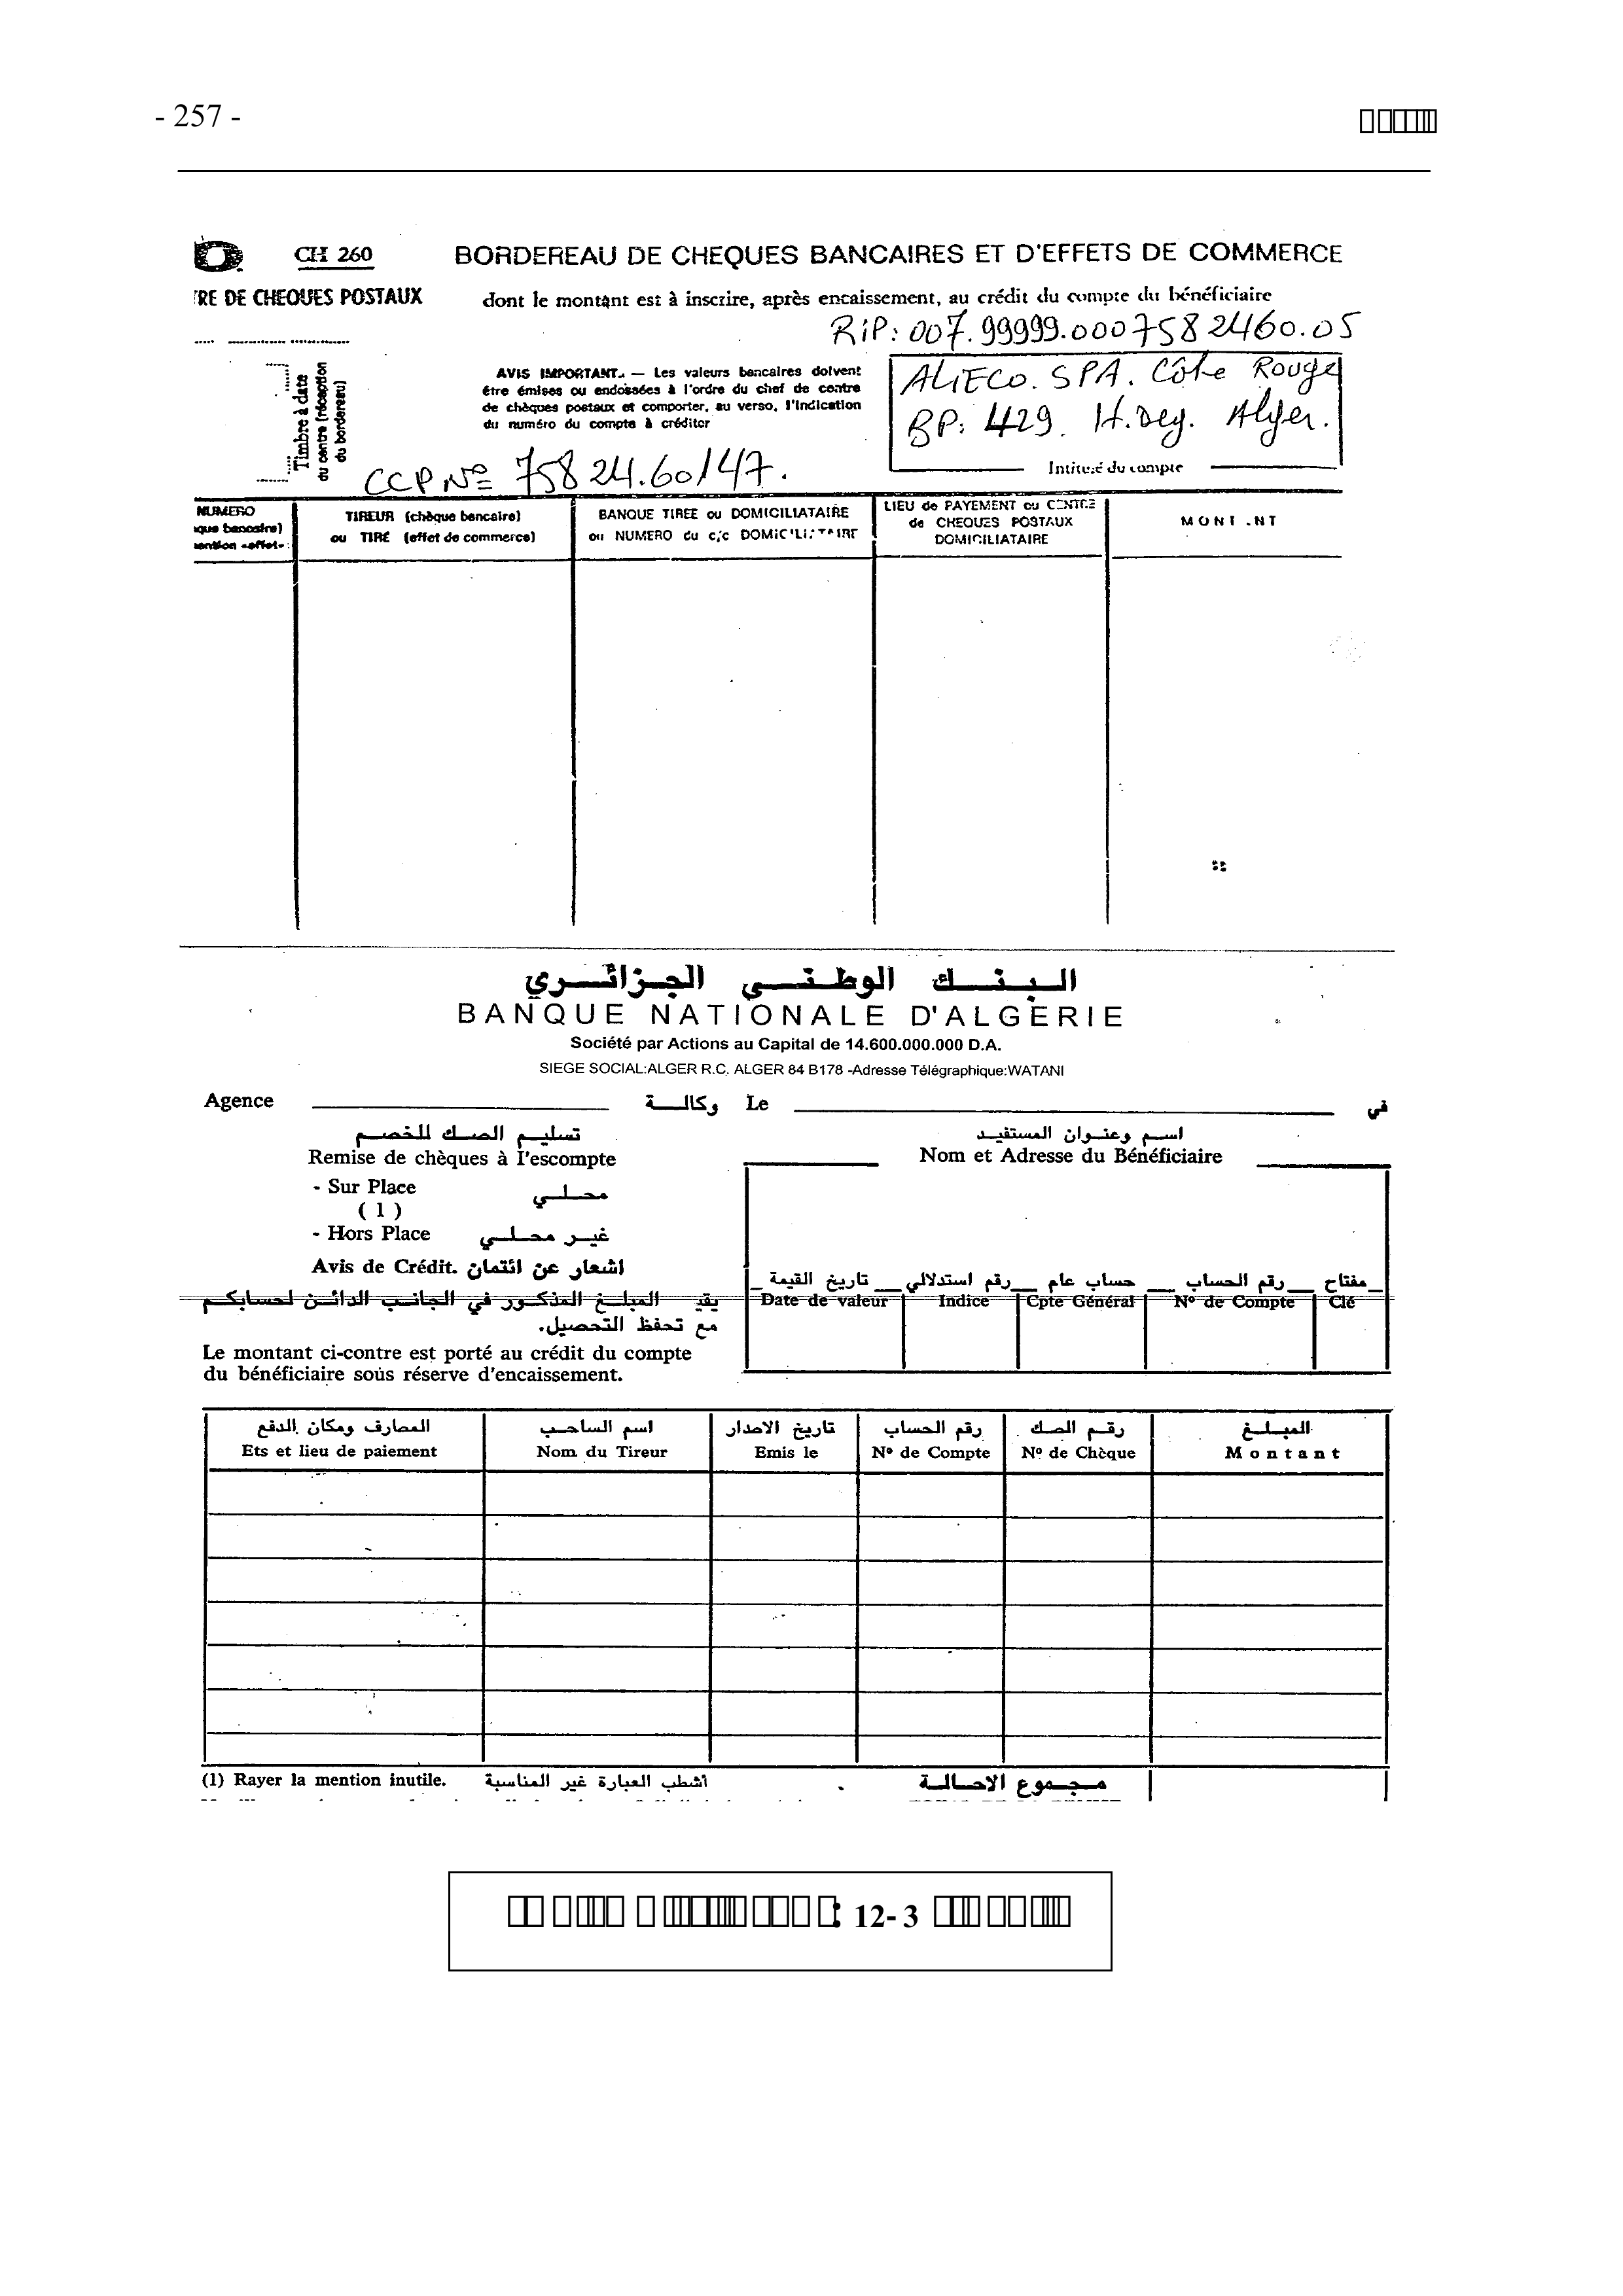 - 257 -
CH 260
BORDEREAU DE CHEQUES BANCAIRES ET D'EFFETS DE COMMERCE
RE DE CHEQUES POSTAUX
dont le montant est à inscrire, après encaissement, au crédit du compte du bénéficiaire
RiP: 007.99999.0007582460.05
Timbre à date
du centre (réception
du bordereau)
AVIS IMPORTANT. — Les valeurs bancaires doivent
être émises ou endossées à l'ordre du chef de centre
de chèques postaux et comporter, au verso, l'indication
du numéro du compte à créditer
ALiECO. SPA. Côte Rouge
BP: 429. H.Dey. Alger.
Intitulé du compte
CCP No= 75824.60/47.
NUMERO
TIREUR (chèque bancaire)
ou TIRÉ (effet de commerce)
BANQUE TIREE ou DOMICILIATAIRE
ou NUMERO du c/c DOMICILIATAIRE
LIEU de PAYEMENT ou CENTRE
de CHEQUES POSTAUX
DOMICILIATAIRE
MONT.NT
البنك الوطني الجزائري
BANQUE NATIONALE D'ALGERIE
Société par Actions au Capital de 14.600.000.000 D.A.
SIEGE SOCIAL:ALGER R.C. ALGER 84 B178 -Adresse Télégraphique:WATANI
Agence وكالة Le في
تسليم الصك للخصم
Remise de chèques à l'escompte
- Sur Place محلي
( 1 )
- Hors Place غير محلي
Avis de Crédit. اشعار عن ائتمان
يقيد المبلغ المذكور في الجانب الدائن لحسابكم
مع تحفظ التحصيل.
Le montant ci-contre est porté au crédit du compte
du bénéficiaire sous réserve d'encaissement.
اسم وعنوان المستفيد
Nom et Adresse du Bénéficiaire
تاريخ القيمة رقم استدلالي حساب عام رقم الحساب مفتاح
Date de valeur Indice Cpte Général Nº de Compte Clé
المصارف ومكان الدفع اسم الساحب تاريخ الاصدار رقم الحساب رقم الصك المبلغ
Ets et lieu de paiement Nom du Tireur Emis le Nº de Compte Nº de Chèque Montant
(1) Rayer la mention inutile. اشطب العبارة غير المناسبة مجموع الاحالة
: 12-3